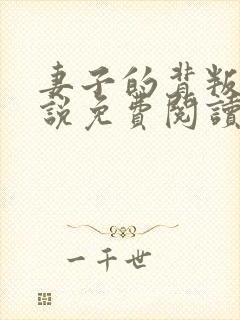 妻子的背叛
說免費閱讀
一千世